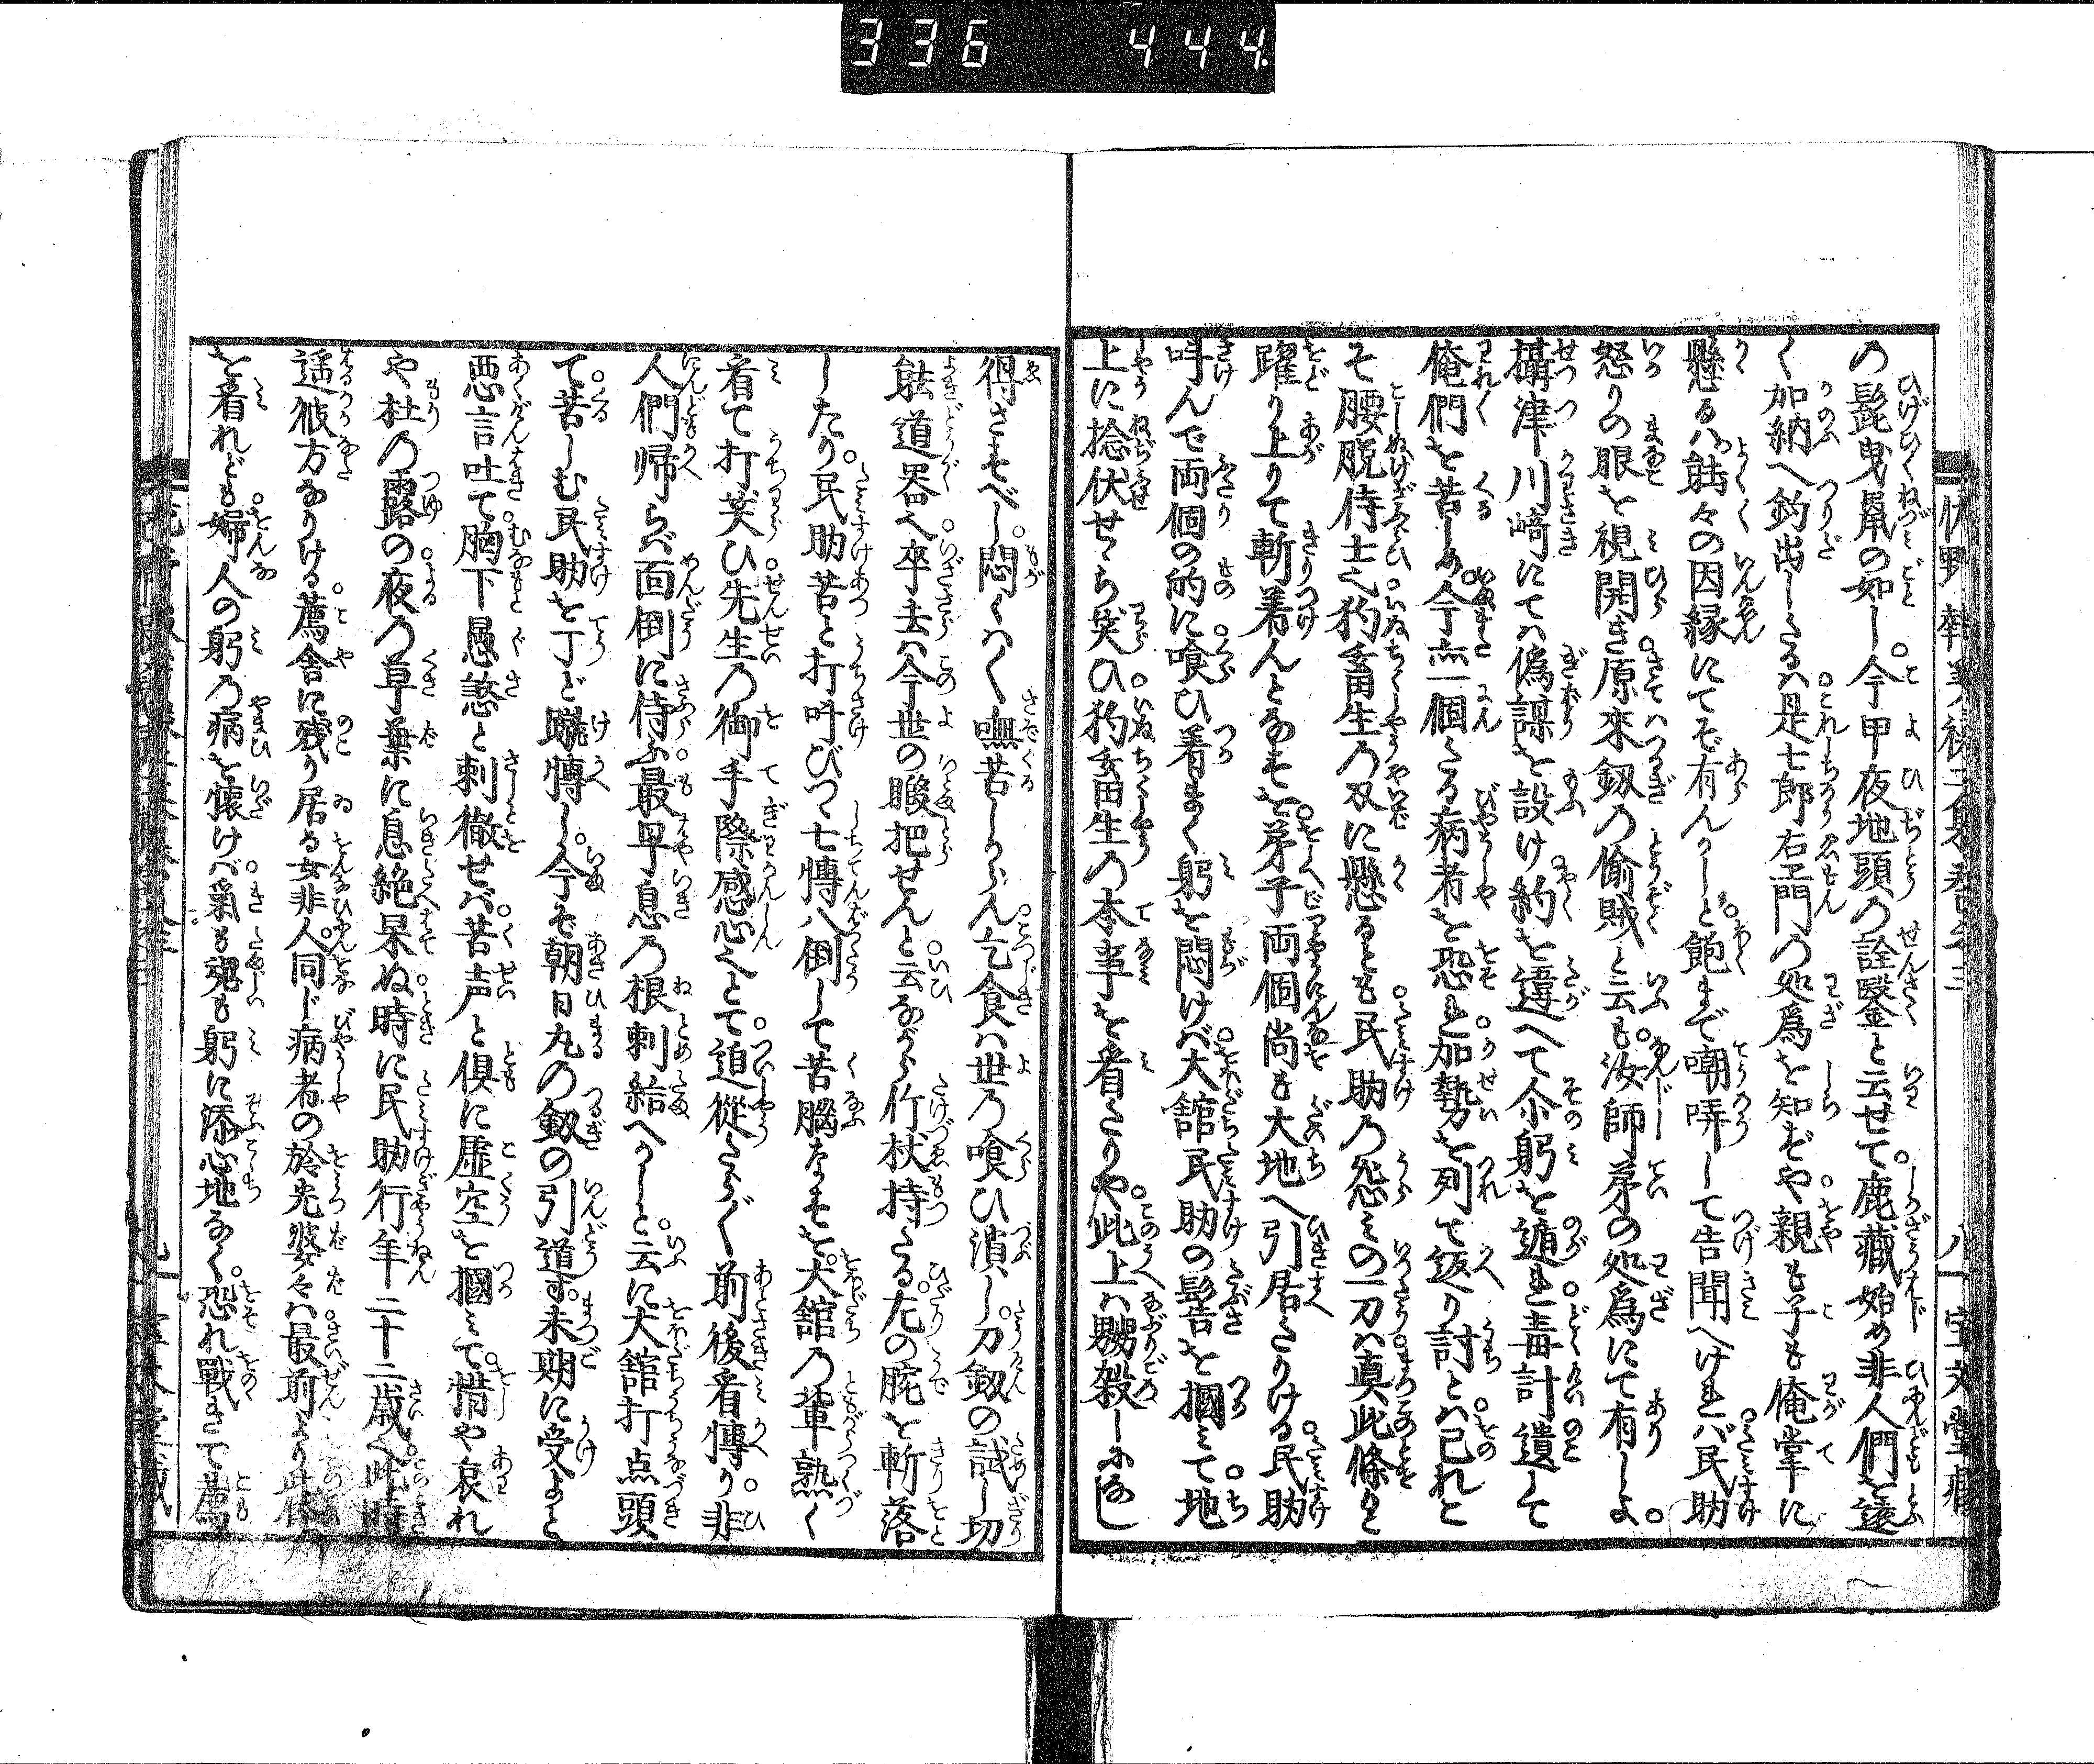 336 444.
の髭曳鼠の如し今甲夜地頭の詮鑿と云せて鹿蔵始め非人們を遠
く加納へ釣出しゝるハ是七郎右エ門の処爲を知ずや親も子も俺掌に
懸るハ能々の因縁にてぞ有んかしと飽まで嘲哢して告聞へけれバ民助
怒りの眼を視開き原来釼の偷賊と云も汝師弟の処爲にて有しよ
攝津川﨑にてハ僞謀を設け約を違へて尒躬を遁れ毒計遺して
俺們を苦しめ今亦一個たる病者を恐れ加勢を列て返り討とハ己れと
そ腰脱侍士之犳畜生の刄に懸るとも民助の怨ミの一刀ハ真此條りと
躍り上りて斬着んとなすを弟子両個尚も大地へ引居さりける民助
呌んで両個の的に喰ひ着まく躬を悶けバ大舘民助の髻を摑ミて地
上に捻伏せゝら笑ひ犳畜生の本事を看さりや此上ハ嬲殺しになし
得さすべし悶くハく嘸苦しからん乞食ハ世の喰ひ潰し刀釼の試し切
能道器之卒去ハ今世の暇把せんと云ながら竹杖持たる左の腕を斬落
したり民助苦と打呌びつゝ七轉八倒して苦腦なすを大舘の輩熟く
看て打笑ひ先生の御手際感心之とて追從たらく前後看轉り非
人們帰らバ面倒に侍ふ最早息の根刺給へかしと云に大舘打点頭
て苦しむ民助を丁ど蹴轉し今ぞ朝日丸の釼の引道す末期に受よと
悪言吐て胸下愚慥と刺徹せバ苦声と倶に虚空を摑ミて惜や哀れ
や杜の露の夜の草葉に息絶果ぬ時に民助行年二十二歳之此時
遥彼方なりける薦舎に殘り居る女非人同じ病者の於光婆々ハ最前より此体
を看れども婦人の躬の病を懐けバ氣も魂も躬に添心地なく恐れ戰きて薦